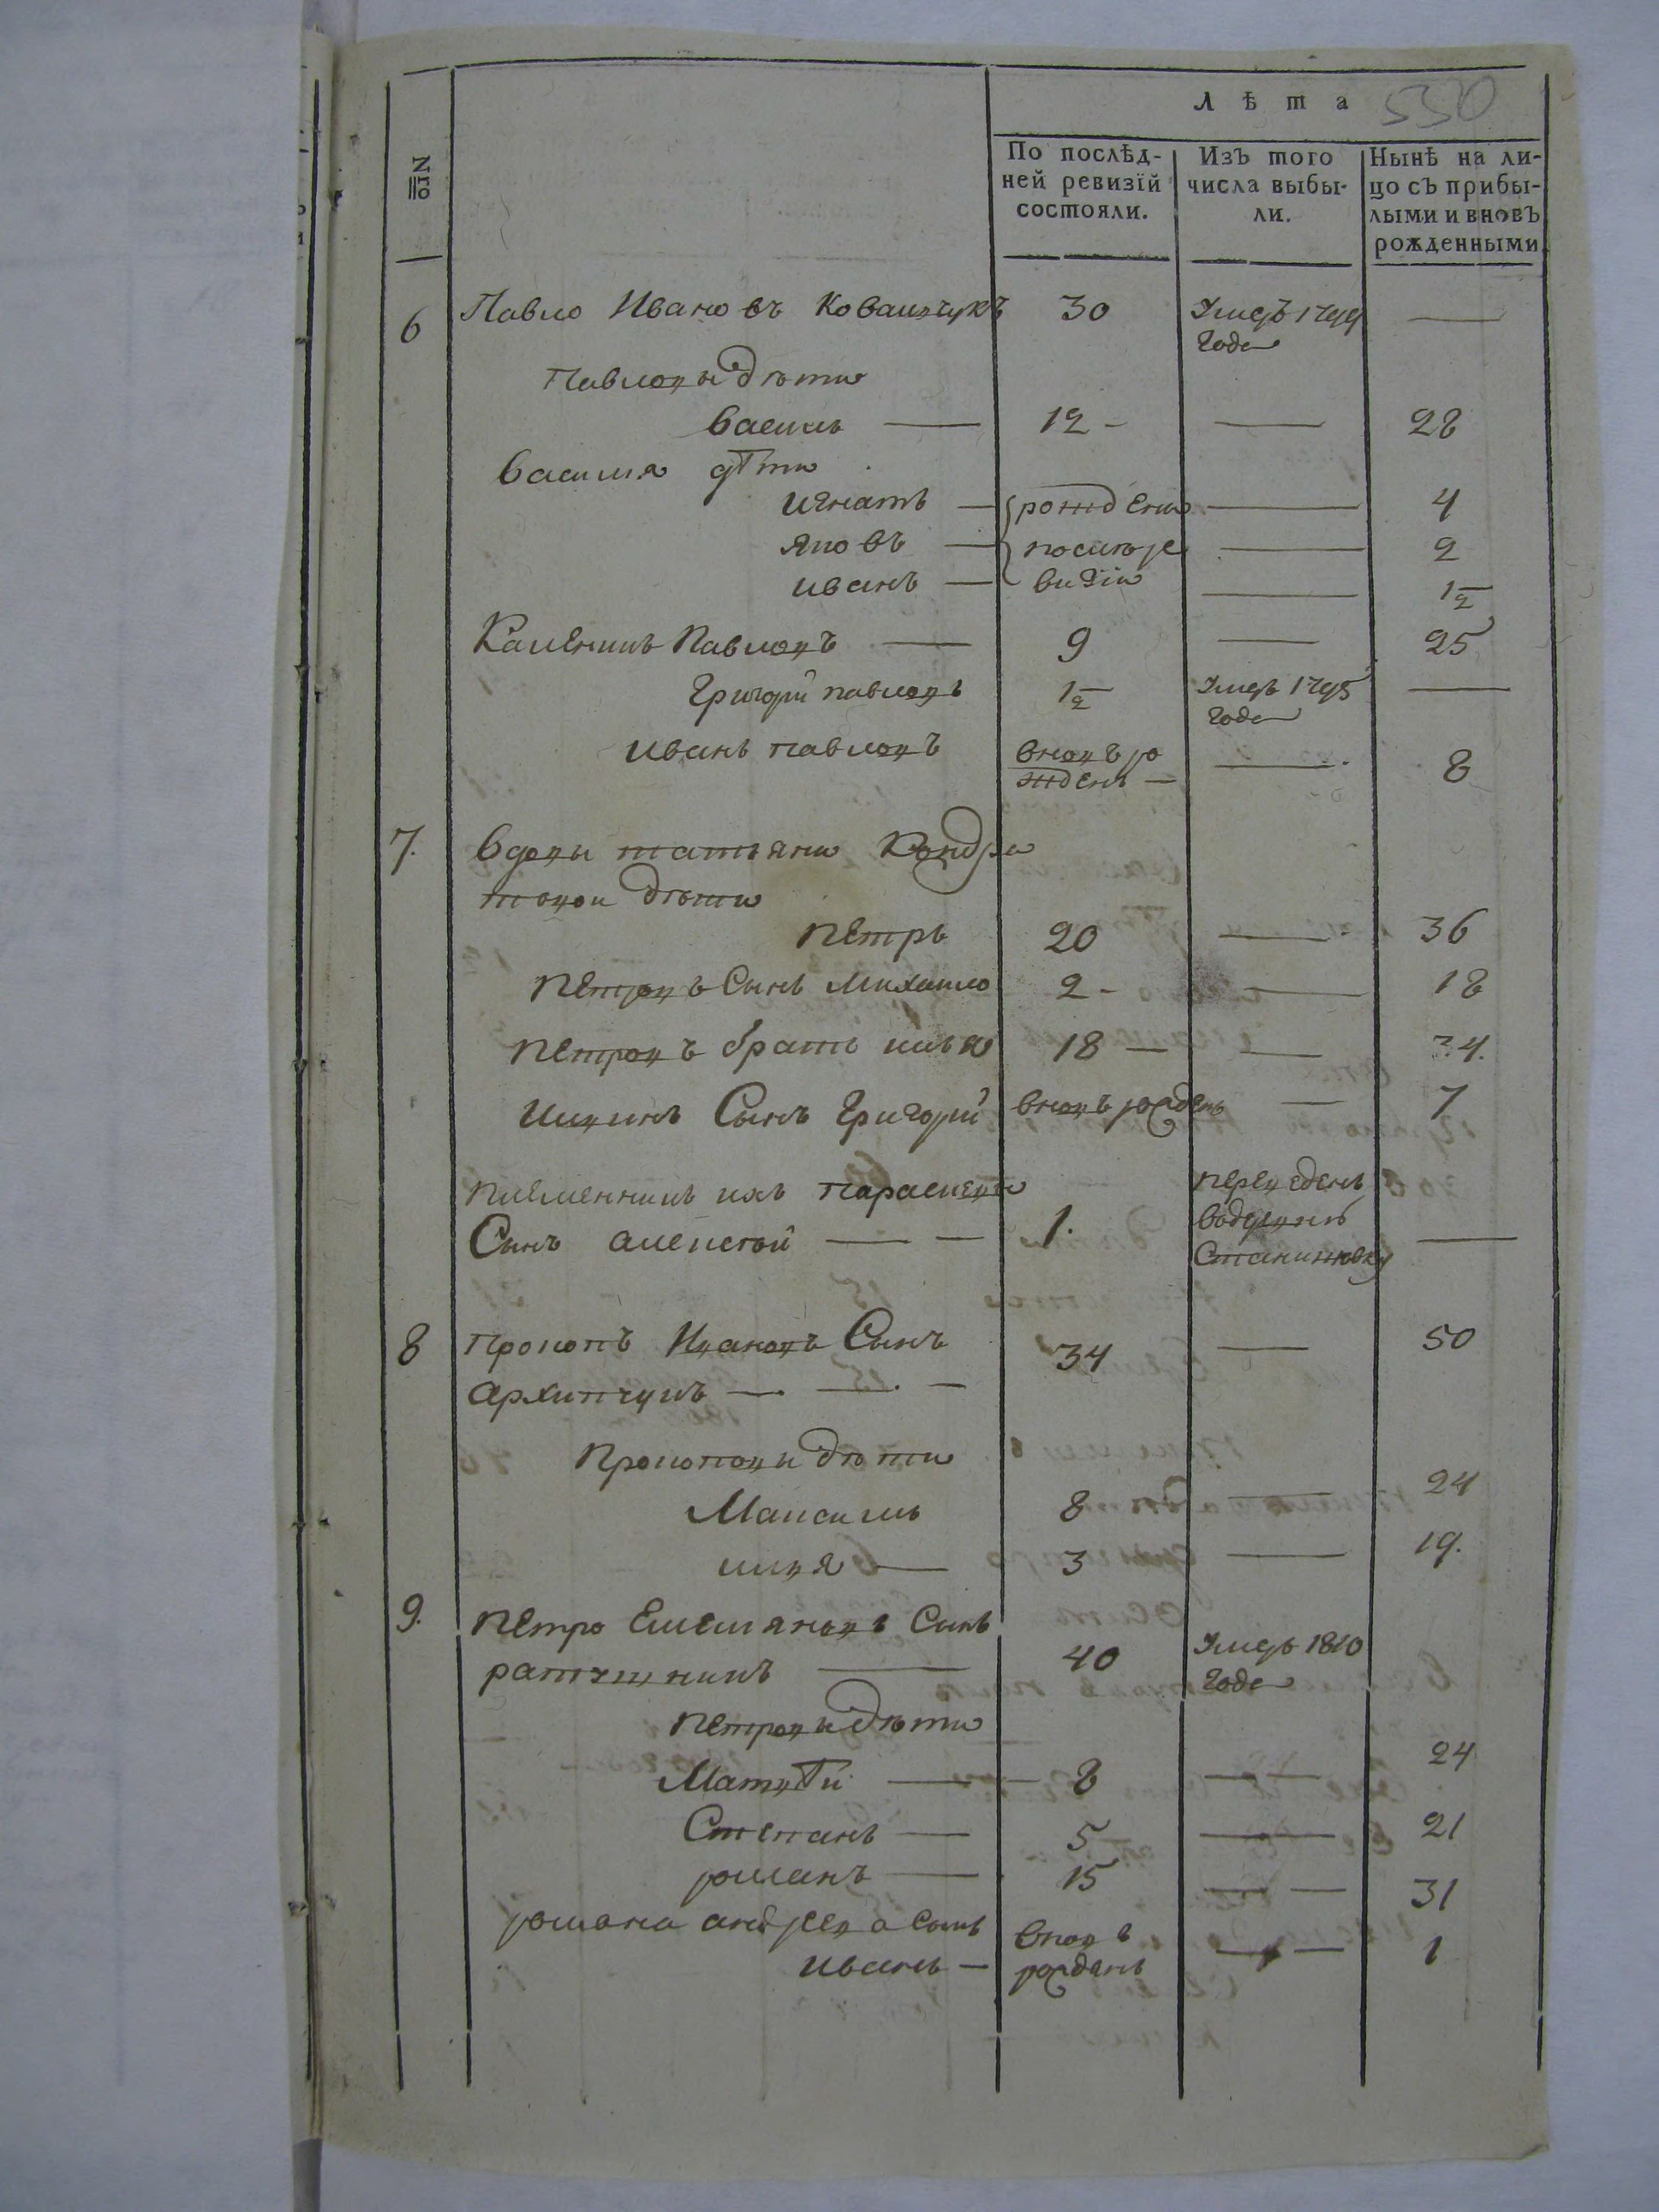 Лѣта 530
№
По послѣд-
ней ревизїй
состояли.
Изъ того
числа выбы-
ли.
Нынѣ на ли-
цо съ прибы-
лыми и вновь
рожденными.
6 Павло Ивановъ Ковалчукъ 30 Умеръ 1799 —
года
Павловы дѣти
Василь — 12 - — 28
Василя дѣти
Игнатъ — рождени — 4
Яковъ — послѣ ре — 2
Иванъ — визїи — 1/2
Каленикъ Павловъ — 9 — 25
Григорій Павловъ 1/2 Умеръ 1795 —
года
Иванъ Павловъ вновъ ро — 8
жденъ —
7. Вдовы Татьяни Кондра
товои дѣти
Петръ 20 — 36
Петровъ сынъ Михайло 2 - — 18
Петровъ братъ Илья 18 — — 34.
Илинъ сынъ Григорій вновъ рожденъ — 7
Племенникъ ихъ Параскеви переведенъ
Сынъ Алексѣй — — 1. —
8 Прокопъ Ивановъ Сынъ 34 — 50
Архипчукъ — — —
Прокоповы дѣти
Максимъ 8 — 24
Илья — 3 — 19.
9. Петро Емельяновъ Сынъ
— 40 Умеръ 1810
года
Петровы дѣти
Матвѣй — — 8 — 24
Степанъ — 5 — 21
Романъ — 15 — — 31
Романа Андреева Сынъ вновъ
Иванъ — рожденъ — 1